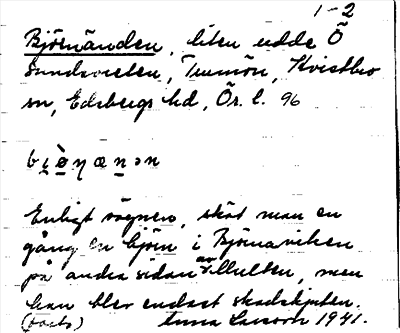 1-2
Björnänden, liten udde Ö
Sundsvreten, Trumön, Kvistbro
sn, Edsbergs hd, Ör. l. 96
Enligt sägnen, sköt man en
gång en björn i Björnaviken
på andra sidan av Multen, men
han blev endast skadskjuten.
(forts) Anna Larsson 1941.